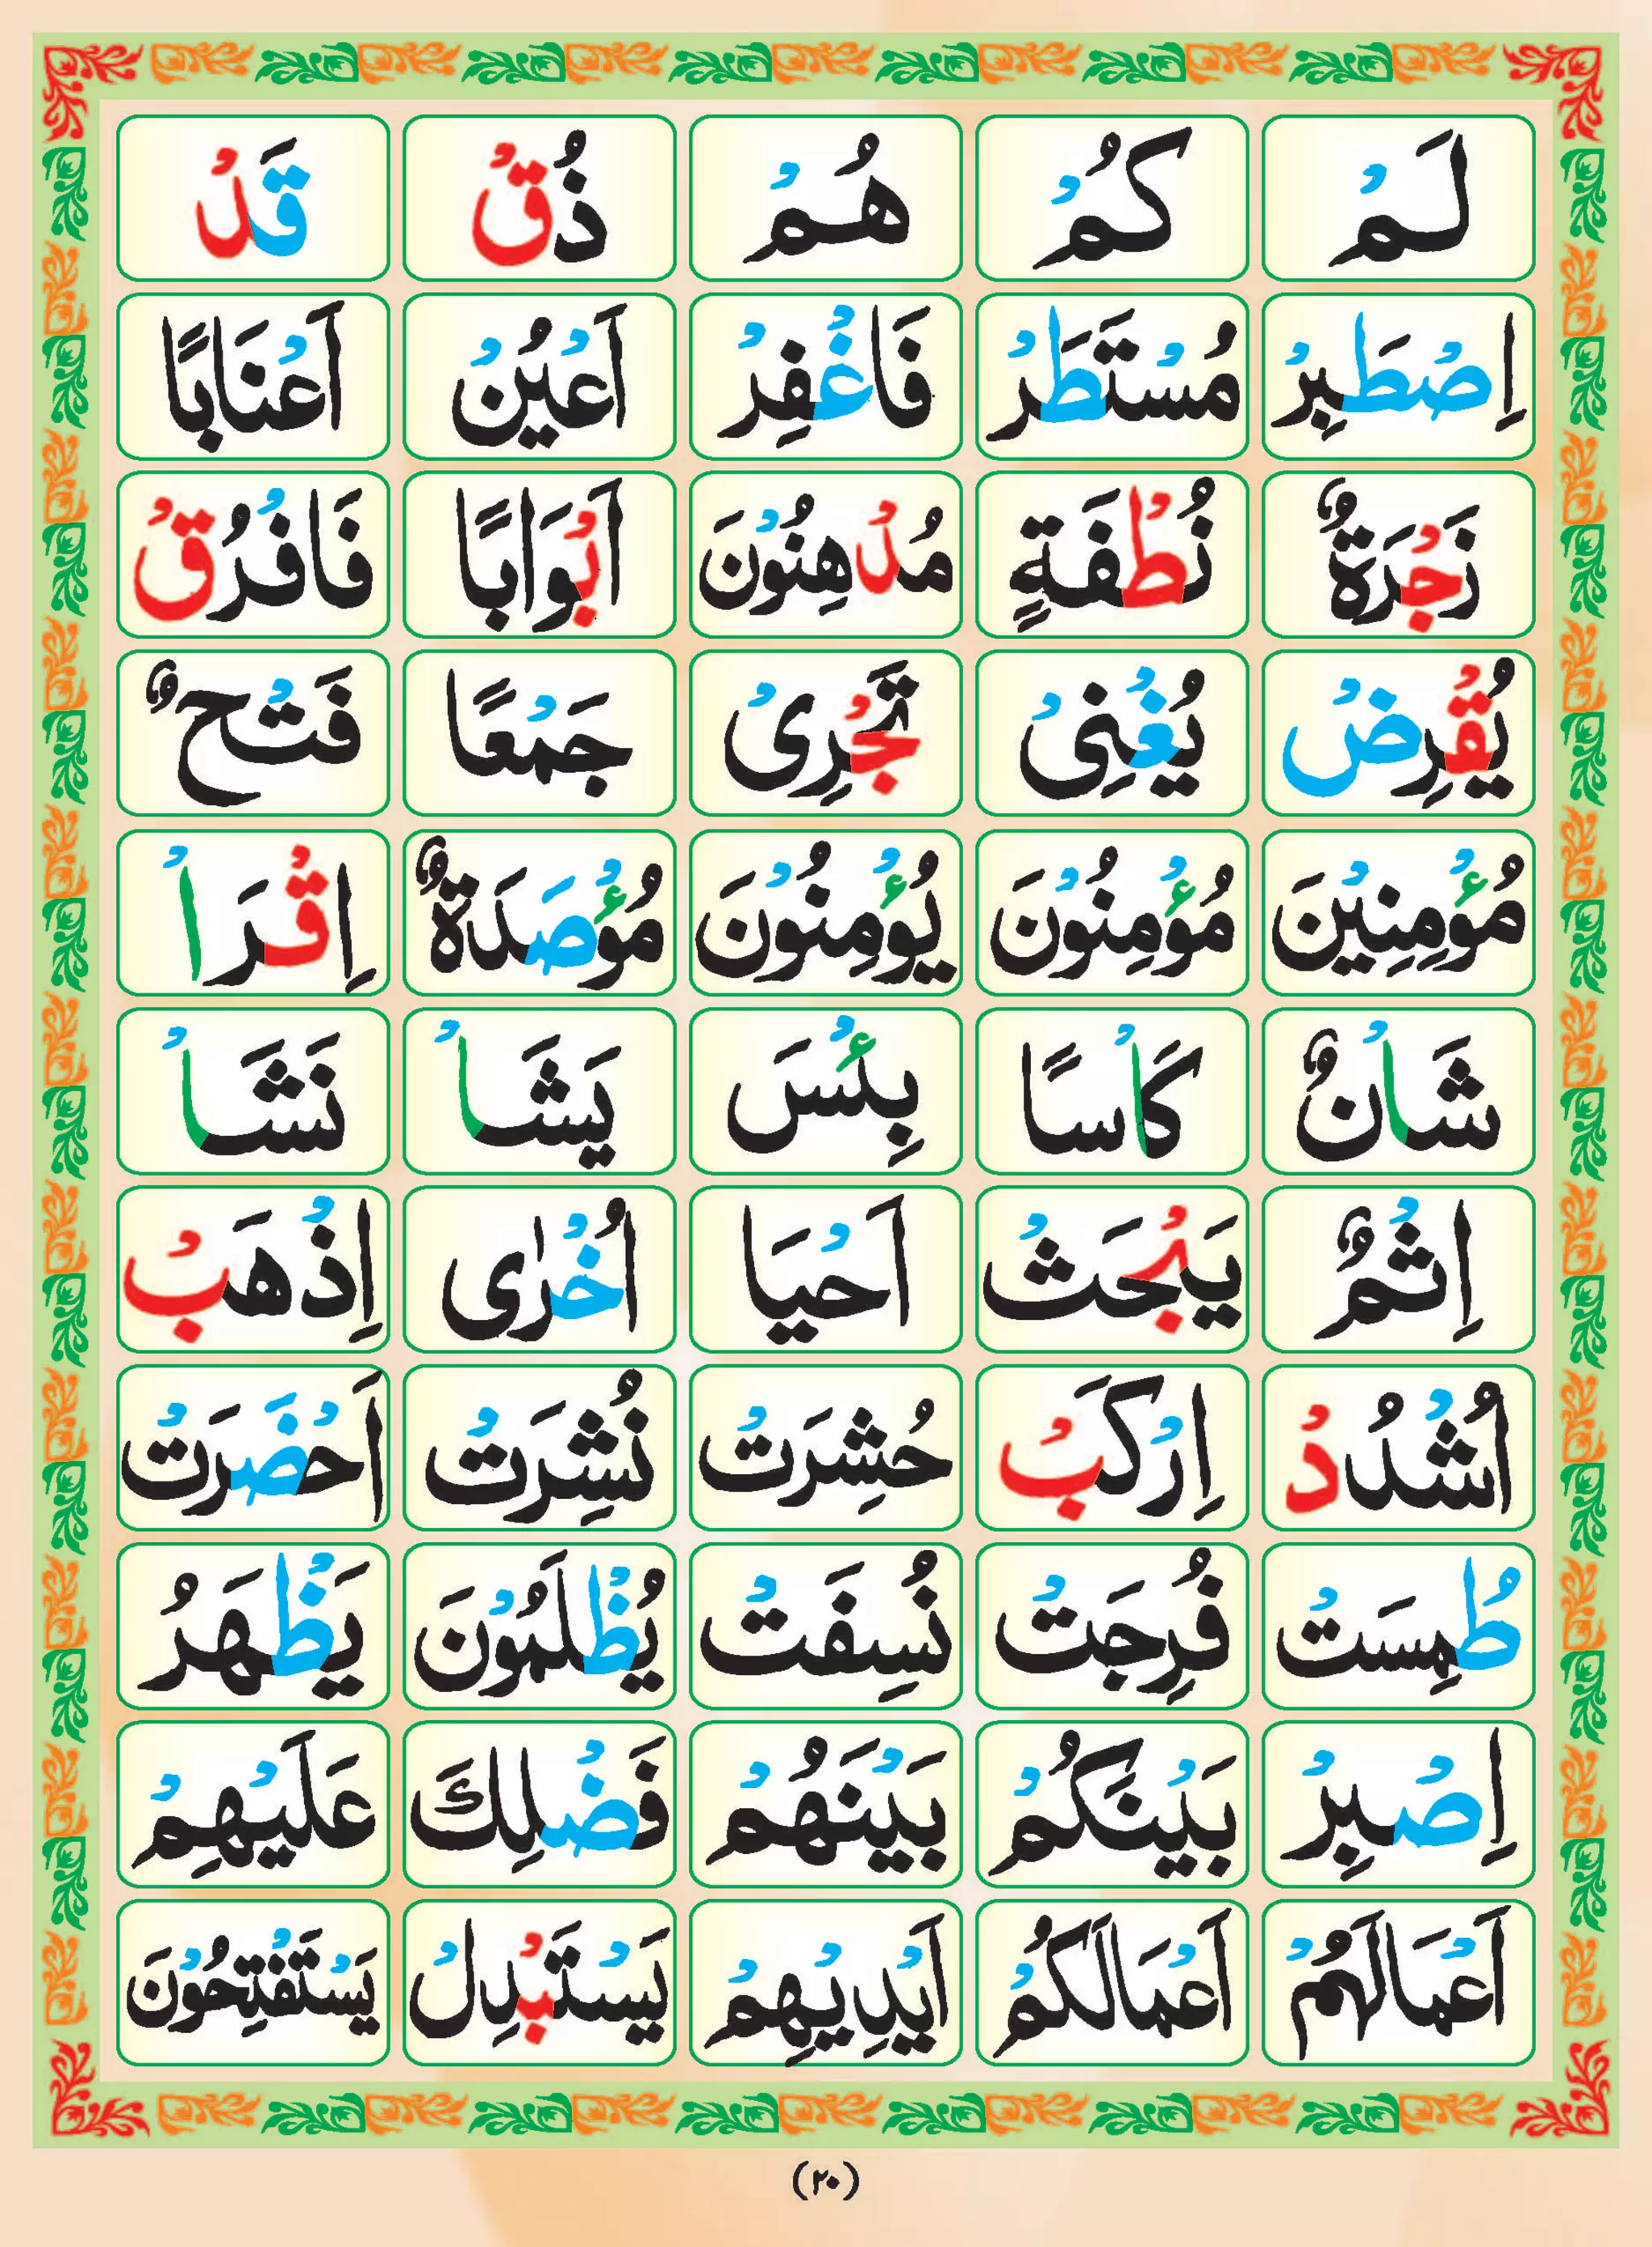 لَمْ كُمْ هُمْ ذُقْ قَدْ
اِصْطَبِرْ مُسْتَطَرْ فَاغْفِرْ اَعْيُنْ اَعْنَابًا
زَجْرَةٌ نُطْفَةٍ مُدْهِنُوْنَ اَبْوَابًا فَافْرُقْ
يُقْرِضْ يُغْنِىْ تَجْرِىْ جَمْعًا فَتْحٌ
مُؤْمِنِيْنَ مُؤْمِنُوْنَ يُؤْمِنُوْنَ مُؤْصَدَةٌ اِقْرَاْ
شَاْنٌ كَاْسًا بِئْسَ يَشَاْ نَشَاْ
اِثْمٌ يَبْحَثْ اَحْيَا اُخْرٰى اِذْهَبْ
اُشْدُدْ اِرْكَبْ حُشِرَتْ نُشِرَتْ اَحْضَرَتْ
طُمِسَتْ فُرِجَتْ نُسِفَتْ يُظْلَمُوْنَ يَظْهَرُ
اِصْبِرْ بَيْنَكُمْ بَيْنَهُمْ فَضْلِكَ عَلَيْهِمْ
اَعْمَالَهُمْ اَعْمَالَكُمْ اَيْدِيْهِمْ يَسْتَبْدِلْ يَسْتَفْتِحُوْنَ
(۲۰)